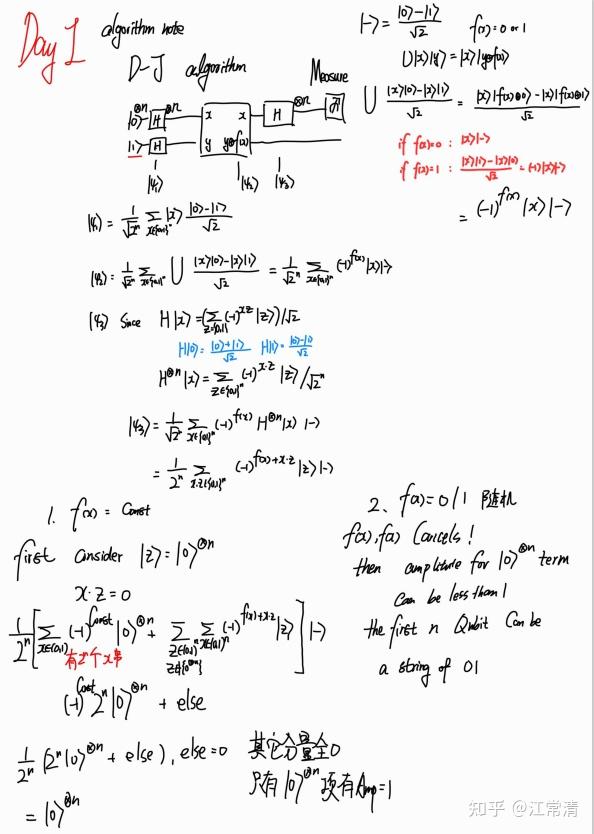 Day 1 algorithm note
D-J algorithm
Measure
|0⟩^⊗n H ^⊗n x x H ^⊗n
|1⟩ H y y⊕f(x)
|ψ₁⟩ |ψ₂⟩ |ψ₃⟩
|-⟩ = (|0⟩-|1⟩)/√2 f(x) = 0 or 1
U|x⟩|y⟩ = |x⟩|y⊕f(x)⟩
U (|x⟩|0⟩-|x⟩|1⟩)/√2 = (|x⟩|f(x)⊕0⟩-|x⟩|f(x)⊕1⟩)/√2
if f(x)=0 : |x⟩|-⟩
if f(x)=1 : (|x⟩|1⟩-|x⟩|0⟩)/√2 = (-1)|x⟩|-⟩
= (-1)^f(x) |x⟩|-⟩
|ψ₁⟩ = 1/√2ⁿ ∑_{x∈{0,1}ⁿ} |x⟩ (|0⟩-|1⟩)/√2
|ψ₂⟩ = 1/√2ⁿ ∑_{x∈{0,1}ⁿ} U (|x⟩|0⟩-|x⟩|1⟩)/√2 = 1/√2ⁿ ∑_{x∈{0,1}ⁿ} (-1)^f(x) |x⟩|-⟩
|ψ₃⟩ Since H|x⟩ = (∑_{z={0,1}} (-1)^{xz} |z⟩)/√2
H|0⟩ = (|0⟩+|1⟩)/√2 H|1⟩ = (|0⟩-|1⟩)/√2
H^⊗n |x⟩ = ∑_{z∈{0,1}ⁿ} (-1)^{x·z} |z⟩/√2ⁿ
|ψ₃⟩ = 1/√2ⁿ ∑_{x∈{0,1}ⁿ} (-1)^f(x) H^⊗n |x⟩ |-⟩
= 1/2ⁿ ∑_{x·z∈{0,1}ⁿ} (-1)^{f(x)+x·z} |z⟩|-⟩
1. f(x) = Const
first consider |z⟩ = |0⟩^⊗n
x·z = 0
1/2ⁿ [∑_{x∈{0,1}ⁿ} (-1)^Const |0⟩^⊗n + ∑_{z∈{0,1}ⁿ z∉{0^⊗n}} ∑_{x∈{0,1}ⁿ} (-1)^{f(x)+x·z} |z⟩] |-⟩
有2ⁿ个x串
(-1)^Const 2ⁿ |0⟩^⊗n + else
1/2ⁿ (2ⁿ|0⟩^⊗n + else), else=0 其它分量全0
= |0⟩^⊗n 只有|0⟩^⊗n项有Amp=1
2. f(x)=0/1 随机
f(x), f(x) Cancels!
then amplitude for |0⟩^⊗n term
can be less than 1
the first n Qubit Can be
a string of 01
知乎 @江常清